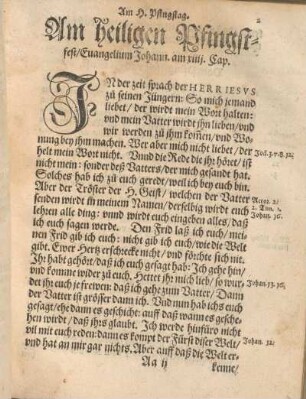 Am H. Pfingstag.
2
Am heiligen Pfingst-
fest/Euangelium Johann. am xiiij. Cap.
IN der zeit sprach der HERR IESVS
zu seinen Jüngern: So mich jemand
liebet/ der wirdt mein Wort halten:
vnd mein Vatter wirdt jhn lieben/ vnd
wir werden zu jhm kom̃en/ vnd Wo-
nung bey jhm machen. Wer aber mich nicht liebet/ der
helt mein Wort nicht. Vnnd die Rede die jhr höret/ ist
nicht mein: sonder deß Vatters/ der mich gesandt hat.
Solches hab ich zu euch geredt/ weil ich bey euch bin.
Aber der Tröster der H. Geist/ welchen der Vatter
senden wirdt in meinem Namen/ derselbig wirdt euch
lehren alle ding: vnnd wirdt euch eingeben alles/ daß
ich euch sagen werde. Den Frid laß ich euch/ mei-
nen Frid gib ich euch: nicht gib ich euch/ wie die Welt
gibt. Ewer Hertz erschreckt nicht/ vnd förchte sich nit.
Ihr habt gehört/ daß ich euch gesagt hab: Ich gehe hin/
vnd komme wider zu euch. Hettet jhr mich lieb/ so wur-
det jhr euch je frewen: daß ich gehe zum Vatter/ Dann
der Vatter ist grösser dann ich. Vnd nun hab ichs euch
gesagt/ ehe dann es geschicht: auff daß wann es gesche-
hen wirdt/ daß jhrs glaubt. Ich werde hinfüro nicht
vil mit euch reden: dann es kompt der Fürst diser Welt/
vnd hat an mir gar nichts. Aber auff daß die Welt er-
Aa ij
kenne/
Johan. 16.
Johan. 12/